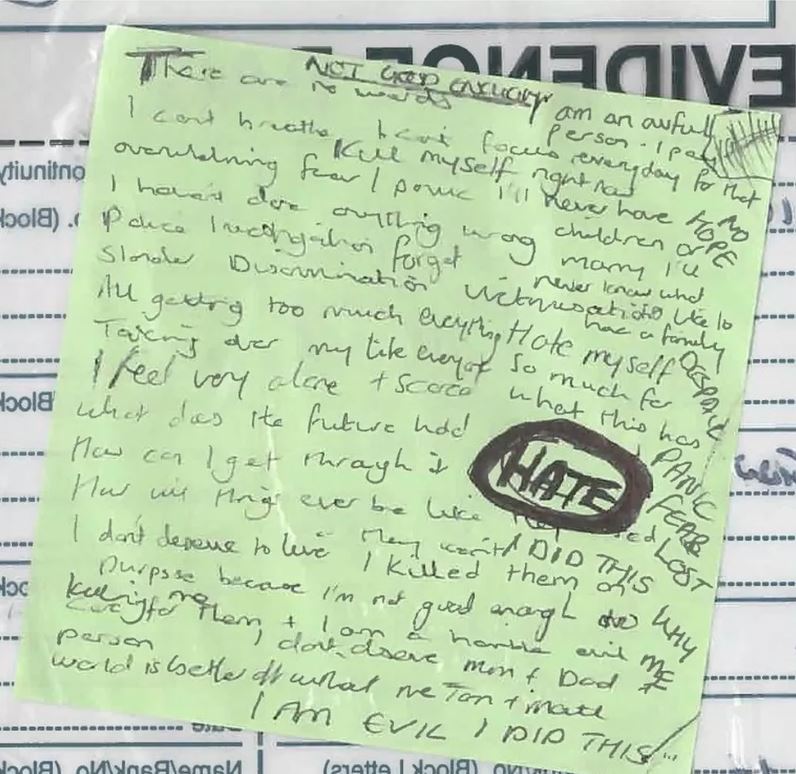 EVIDENCE
NOT GOOD ENOUGH
There are no words
I am an awful person. I pay everyday for that
I cant breathe I cant focus
Kill myself right now
overwhelming fear / panic I'll never have NO HOPE
I haven't done anything wrong
children or marry I'll
Police Investigation forget
never know what
Slander Discrimination Victimisation
its like to have a family
All getting too much everything
Hate myself DESPAIR
Taking over my life everyone
so much for
I feel very alone + scared
what this has
what does the future hold
PANIC
How can I get through it
HATE
FEAR
How will things ever be like
LOST
they won't
I DID THIS
I don't deserve to live
I killed them on
WHY
purpose because I'm not good enough to
killing me
care for them + I am a horrible evil
ME
person I don't deserve mum + Dad
world is better off without me
I AM EVIL I DID THIS
Name/Rank/No (Block
No (Block Letters)